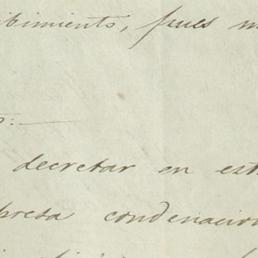 ibimiento, pues
o:
decretar en est
presa condenacion